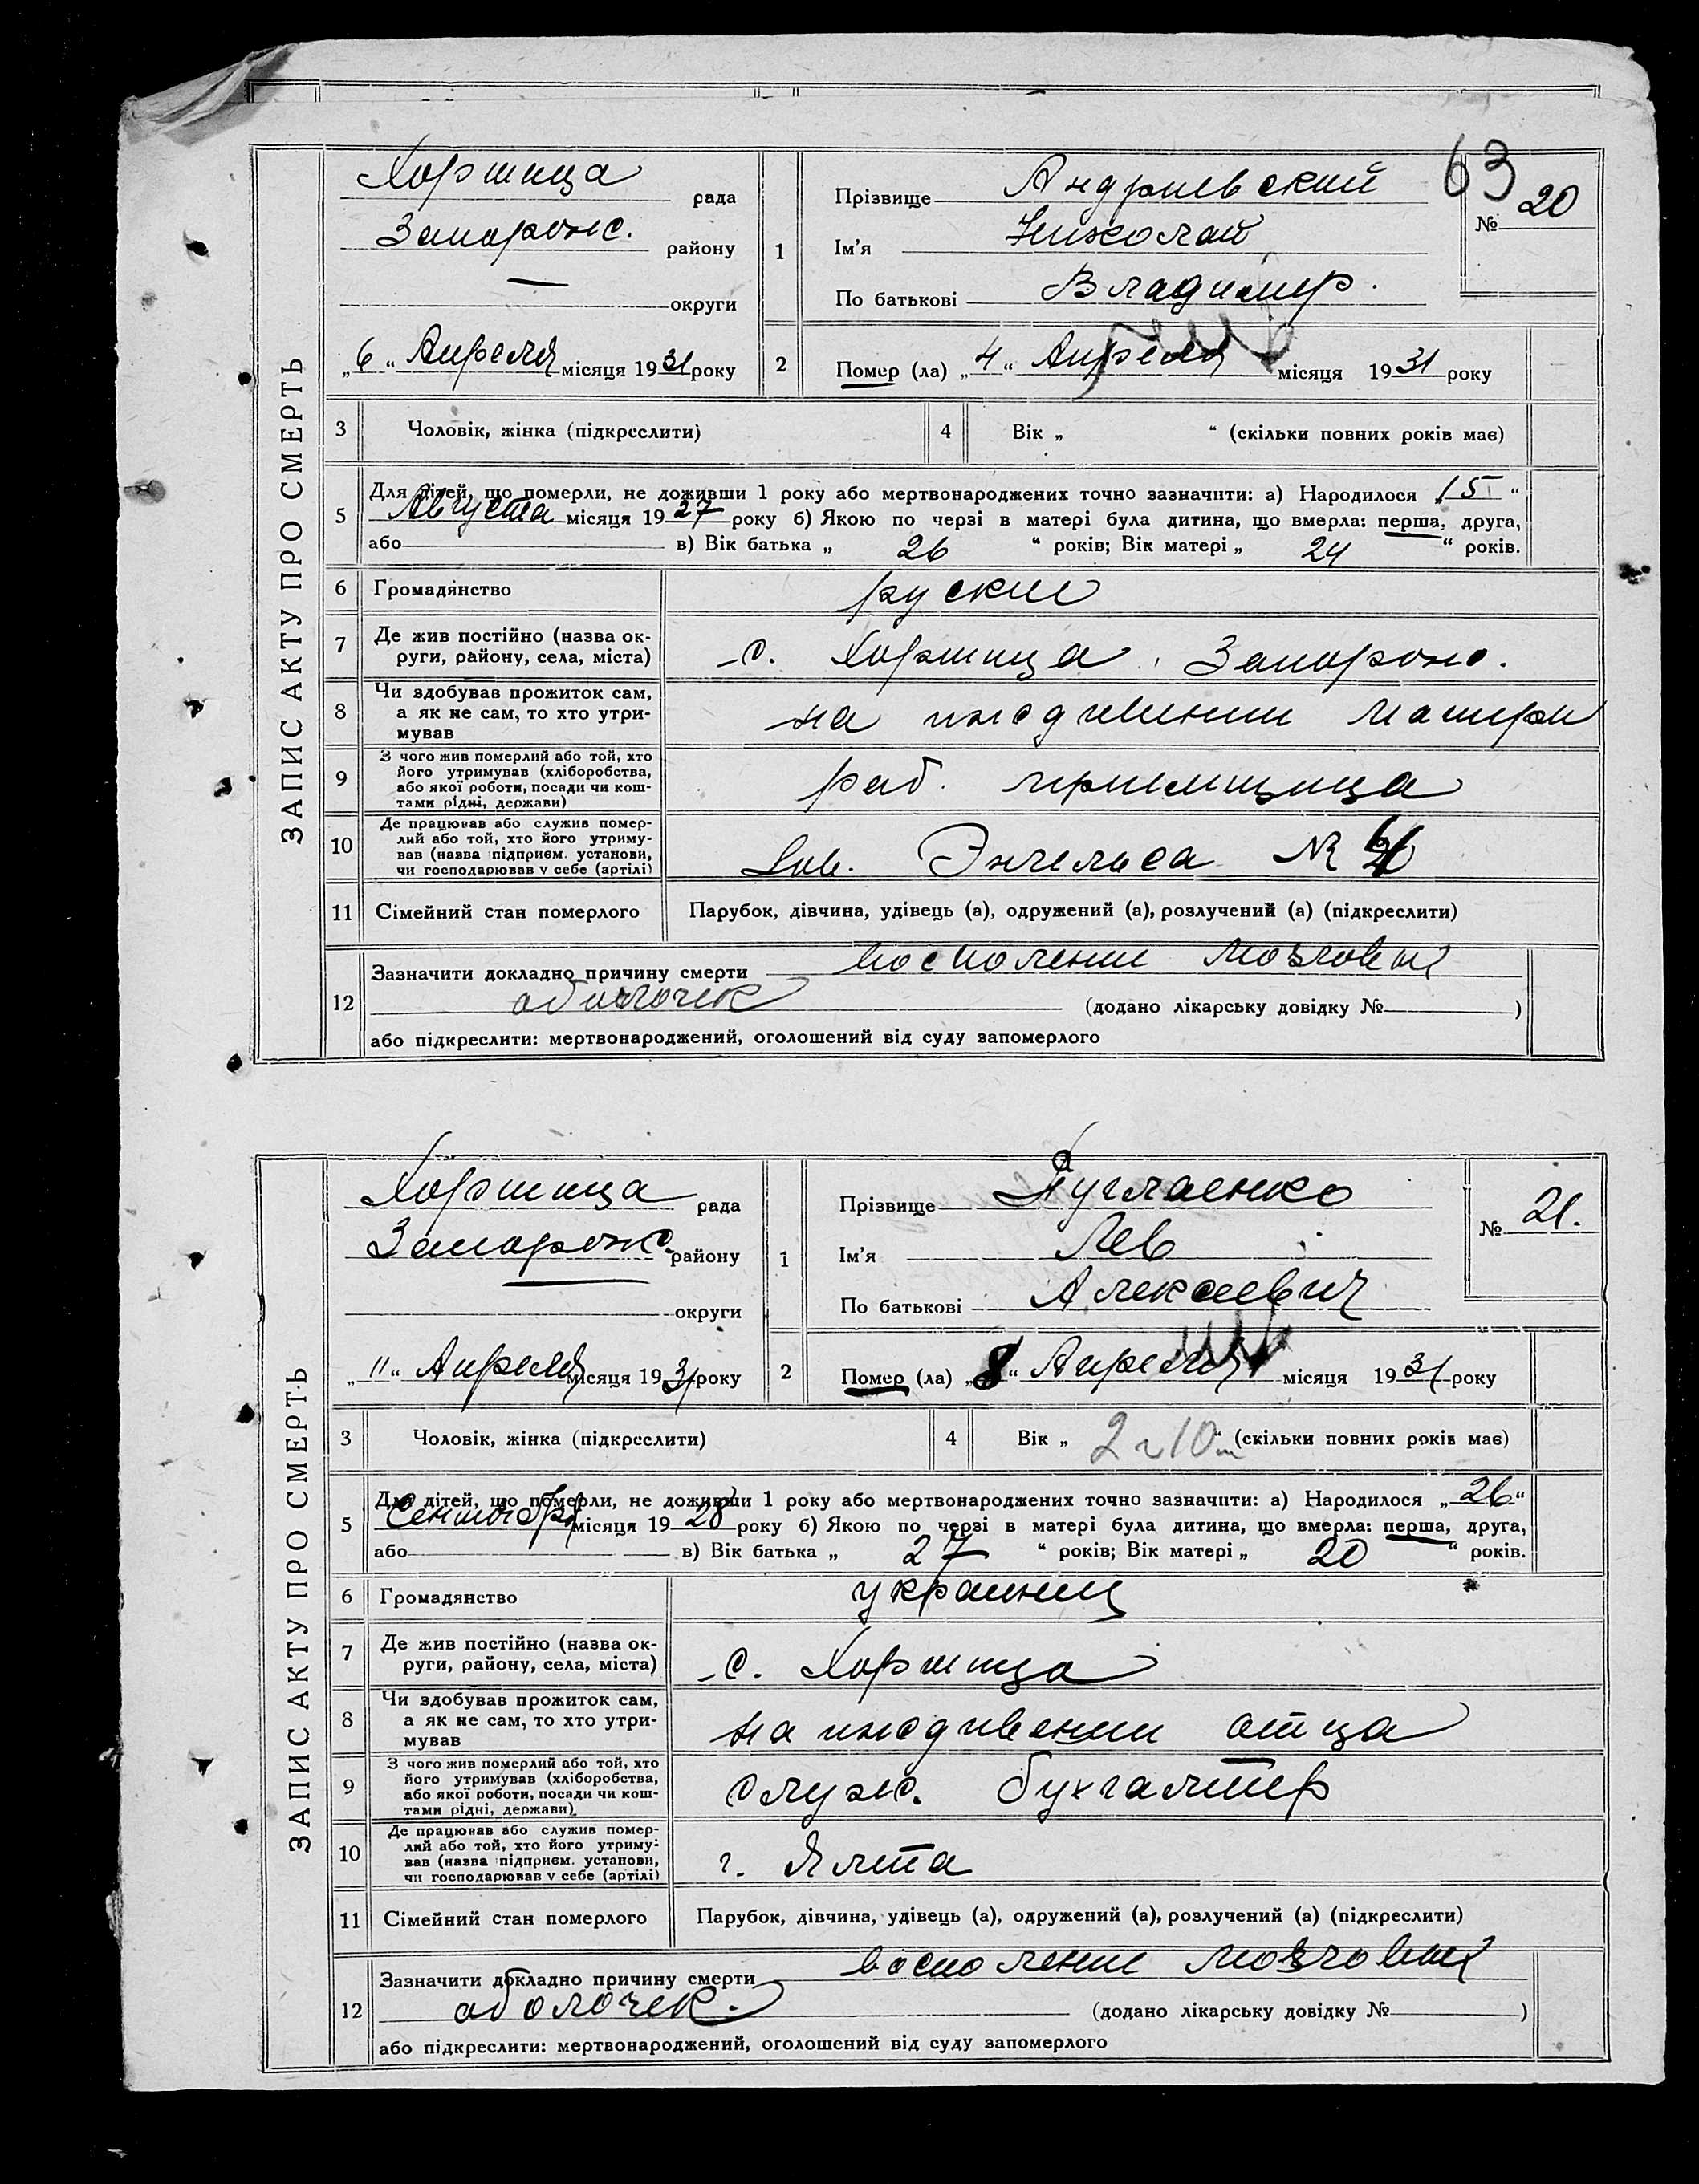 63
ЗАПИС АКТУ ПРО СМЕРТЬ
Хортица рада
Запорож. району
— округи
„6“ Апреля місяця 1931 року
1
Прізвище Андриевский
Ім’я Николай
По батькові Владимир.
№ 20
2
Помер (ла) „4“ Апреля місяця 1931 року
3 Чоловік, жінка (підкреслити)
4 Вік „ “ (скільки повних років має)
5 Для дітей, що померли, не доживши 1 року або мертвонароджених точно зазначити: а) Народилося „15“
Августа місяця 1927 року б) Якою по черзі в матері була дитина, що вмерла: перша, друга,
або в) Вік батька „ 26 “ років; Вік матері „ 24 “ років.
6 Громадянство руский
7 Де жив постійно (назва ок-
руги, району, села, міста) с. Хортица, Запорож.
8 Чи здобував прожиток сам,
а як не сам, то хто утри-
мував на иждивении матери
9 З чого жив померлий або той, хто
його утримував (хліборобства,
або якої роботи, посади чи кош-
тами рідні, держави) раб.
10 Де працював або служив помер-
лий або той, хто його утриму-
вав (назва підприєм. установи,
чи господарював у себе (артілі) Энгельса №
11 Сімейний стан померлого Парубок, дівчина, удівець (а), одружений (а), розлучений (а) (підкреслити)
12 Зазначити докладно причину смерти восполение мозговых
оболочек (додано лікарську довідку № )
або підкреслити: мертвонароджений, оголошений від суду запомерлого
ЗАПИС АКТУ ПРО СМЕРТЬ
Хортица рада
Запорож. району
округи
„11“ Апреля місяця 1931 року
1
Прізвище
Ім’я Лев
По батькові Алексеевич
№ 21.
2
Помер (ла) „8“ Апреля місяця 1931 року
3 Чоловік, жінка (підкреслити)
4 Вік „ 2 г 10 м “ (скільки повних років має)
5 Для дітей, що померли, не доживши 1 року або мертвонароджених точно зазначити: а) Народилося „26“
Сентября місяця 1928 року б) Якою по черзі в матері була дитина, що вмерла: перша, друга,
або в) Вік батька „ 27 “ років; Вік матері „ 20 “ років.
6 Громадянство украинец
7 Де жив постійно (назва ок-
руги, району, села, міста) с. Хортица
8 Чи здобував прожиток сам,
а як не сам, то хто утри-
мував на иждивении отца
9 З чого жив померлий або той, хто
його утримував (хліборобства,
або якої роботи, посади чи кош-
тами рідні, держави) служ. бухгалтер
10 Де працював або служив помер-
лий або той, хто його утриму-
вав (назва підприєм. установи,
чи господарював у себе (артілі) г. Ялта
11 Сімейний стан померлого Парубок, дівчина, удівець (а), одружений (а), розлучений (а) (підкреслити)
12 Зазначити докладно причину смерти восполение мозговых
оболочек. (додано лікарську довідку № )
або підкреслити: мертвонароджений, оголошений від суду запомерлого